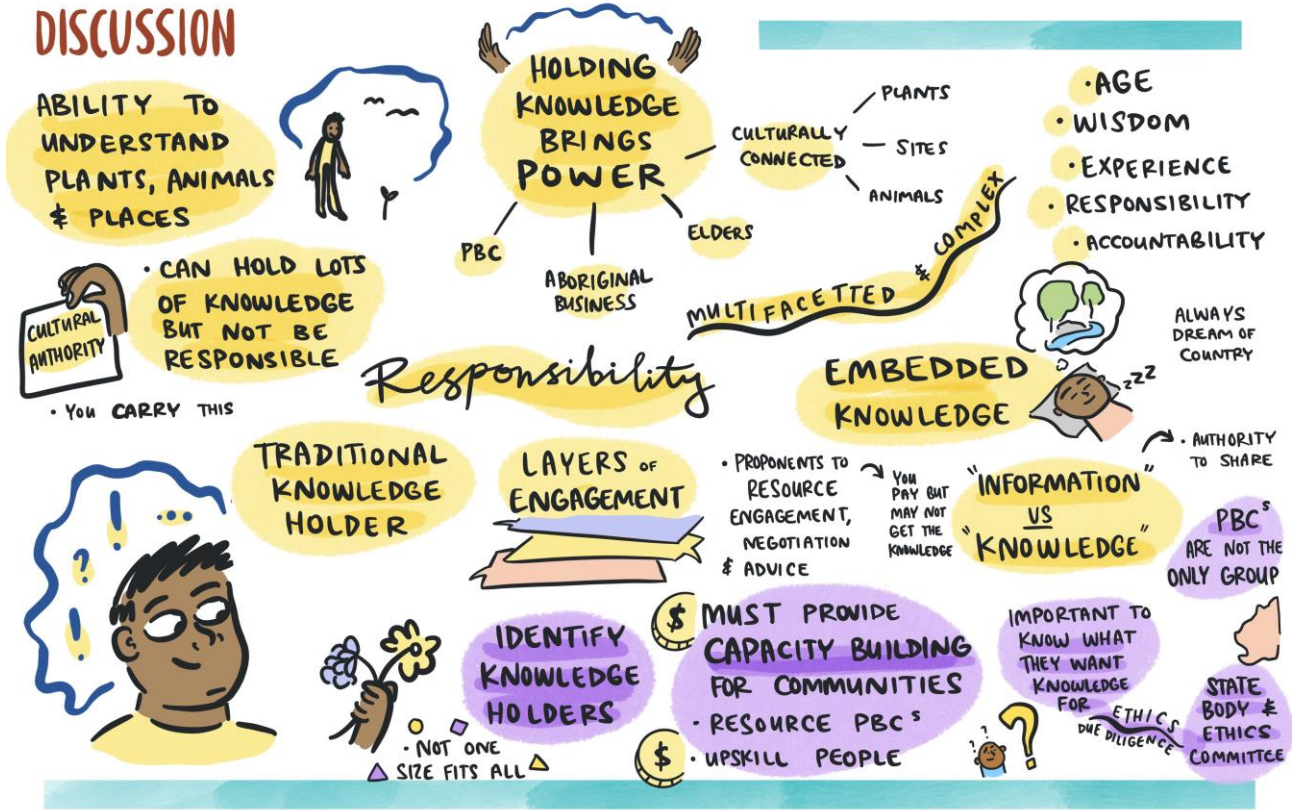 DISCUSSION
ABILITY TO
UNDERSTAND
PLANTS, ANIMALS
& PLACES
HOLDING
KNOWLEDGE
BRINGS
POWER
PBC
ABORIGINAL
BUSINESS
ELDERS
CULTURALLY
CONNECTED
PLANTS
SITES
ANIMALS
• AGE
• WISDOM
• EXPERIENCE
• RESPONSIBILITY
• ACCOUNTABILITY
CULTURAL
AUTHORITY
• YOU CARRY THIS
• CAN HOLD LOTS
OF KNOWLEDGE
BUT NOT BE
RESPONSIBLE
MULTIFACETTED & COMPLEX
Responsibility
EMBEDDED
KNOWLEDGE
zzz
ALWAYS
DREAM OF
COUNTRY
TRADITIONAL
KNOWLEDGE
HOLDER
LAYERS OF
ENGAGEMENT
• PROPONENTS TO
RESOURCE
ENGAGEMENT,
NEGOTIATION
& ADVICE
YOU
PAY BUT
MAY NOT
GET THE
KNOWLEDGE
"INFORMATION"
VS
"KNOWLEDGE"
• AUTHORITY
TO SHARE
PBCs
ARE NOT THE
ONLY GROUP
! ? !
IDENTIFY
KNOWLEDGE
HOLDERS
• NOT ONE
SIZE FITS ALL
$
$
MUST PROVIDE
CAPACITY BUILDING
FOR COMMUNITIES
• RESOURCE PBCs
• UPSKILL PEOPLE
? ? ?
?
IMPORTANT TO
KNOW WHAT
THEY WANT
KNOWLEDGE
FOR
ETHICS
DUE DILIGENCE
STATE
BODY &
ETHICS
COMMITTEE